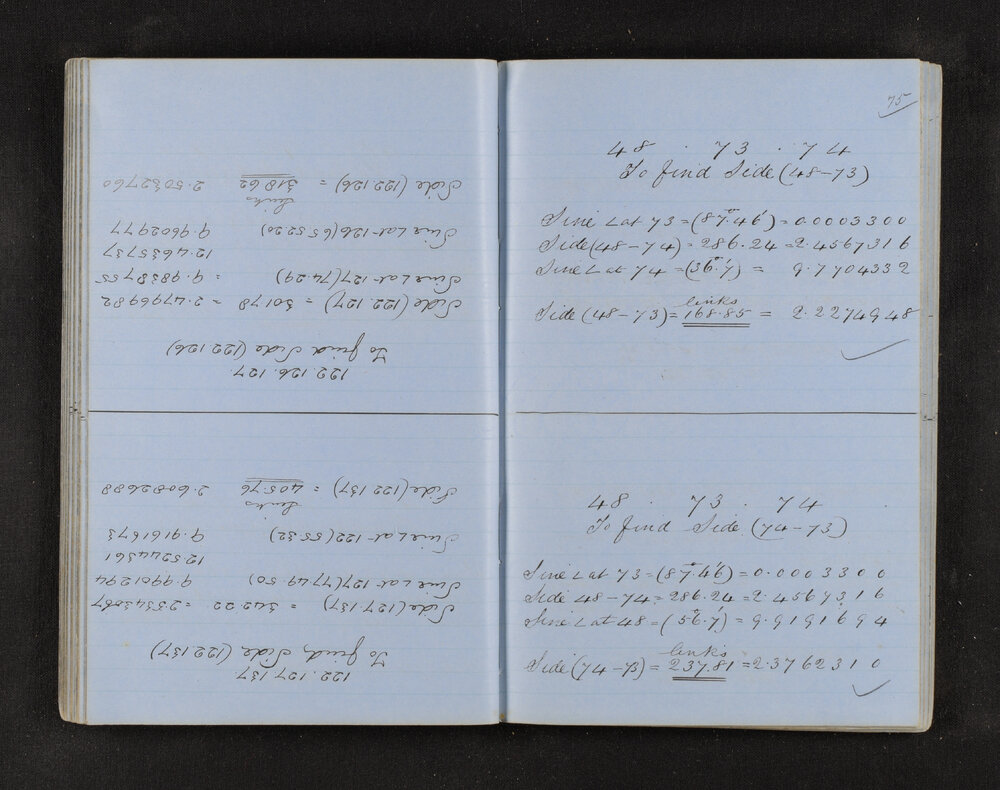 122.127.137
To find Side (122.137)
Side (127.137) = 342.22 = 2.5343067
Sine ∠ at 127 (77.49.50) 9.9901294
12.5244361
Sine ∠ at 122 (55.32) 9.9161673
links
Side (122.137) = 405.76 2.6082688
122.126.127
To find Side (122.126)
Side (122.127) = 301.78 = 2.4796982
Sine ∠ at 127 (74.29) = 9.9838755
12.4635737
Sine ∠ at 126 (65.52.20) 9.9602977
links
Side (122.126) = 318.62 2.5032760
75
48 . 73 . 74
To find Side (48-73)
Sine ∠ at 73 = (87°.46') = 0.0003300
Side (48-74) = 286.24 = 2.4567316
Sine ∠ at 74 = (36°.7') = 9.7704332
links
Side (48-73) = 168.85 = 2.2274948
48 . 73 . 74
To find Side (74-73)
Sine ∠ at 73 = (87°.46') = 0.0003300
Side 48-74 = 286.24 = 2.4567316
Sine ∠ at 48 = (56°.7') = 9.9191694
links
Side (74-73) = 237.81 = 2.3762310